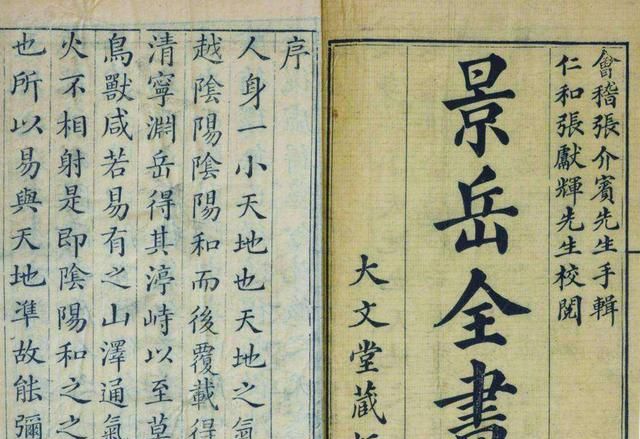 會稽張介賓先生手輯
仁和張獻輝先生校閱
景岳全書
大文堂藏
序
人身一小天地也天地之氣
越陰陽陰陽和而後覆載得
清寧淵岳得其渟峙以至草
鳥獸咸若易有之山澤通氣
火不相射是即陰陽和之之
也所以易與天地準故能彌